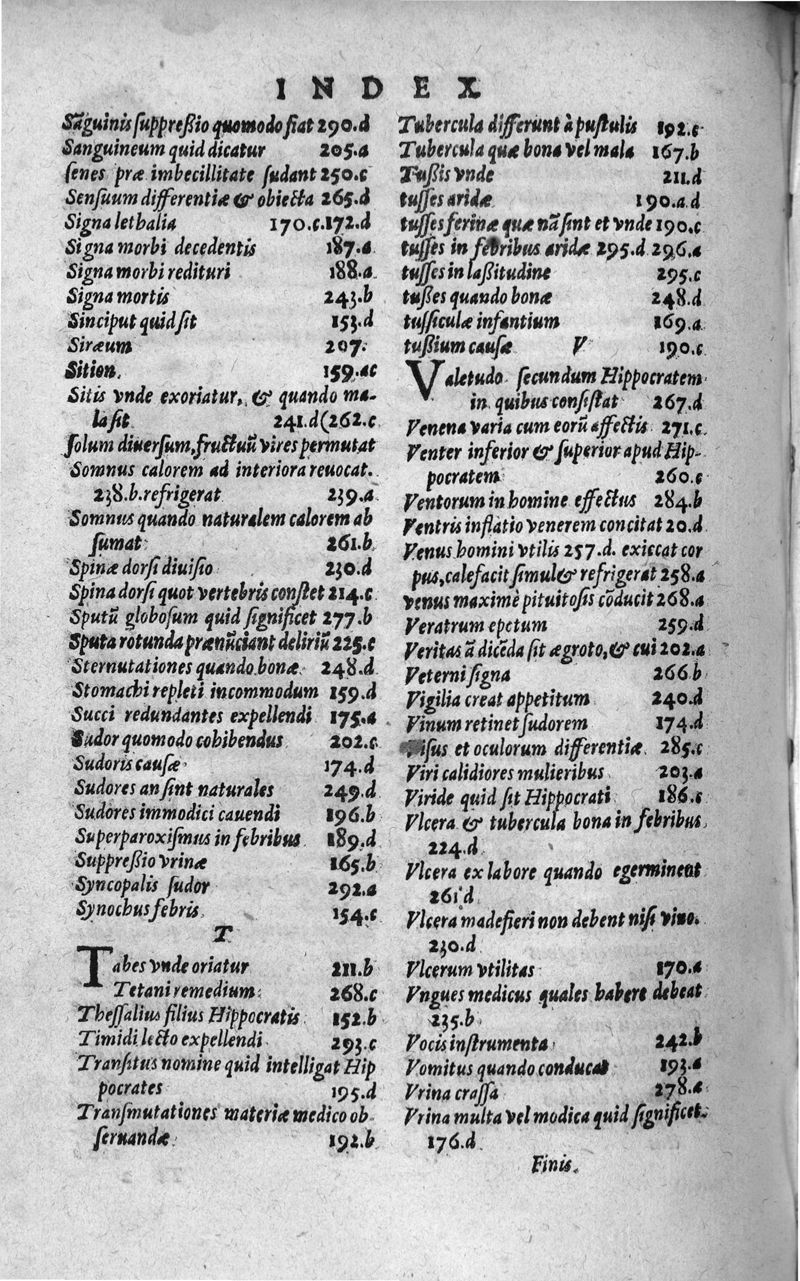 INDEX
Sãguinis ſuppreßio quomodo fiat 290.d
Sanguineum quid dicatur 205.a
ſenes præ imbecillitate ſudant 250.c
Senſuum differentiæ & obiecta 265.d
Signa lethalia 170.c.172.d
Signa morbi decedentis 187.a
Signa morbi redituri 188.a
Signa mortis 243.b
Sinciput quid ſit 153.d
Siræum 207.
Sition. 159.ac
Sitis vnde exoriatur, & quando ma-
la ſit 241.d(262.c
ſolum diuerſum, fructuũ vires permutat
Somnus calorem ad interiora reuocat.
238.b. refrigerat 239.a
Somnus quando naturalem calorem ab
ſumat 261.b
Spinæ dorſi diuiſio 230.d
Spina dorſi quot vertebris conſtet 214.c
Sputũ globoſum quid ſignificet 277.b
Sputa rotunda prænũciant deliriũ 225.c
Sternutationes quando bonæ 248.d
Stomachi repleti incommodum 159.d
Succi redundantes expellendi 175.a
Sudor quomodo cohibendus 202.c
Sudoris cauſæ 174.d
Sudores an ſint naturales 249.d
Sudores immodici cauendi 196.b
Superparoxiſmus in febribus 189.d
Suppreßio vrinæ 165.b
Syncopalis ſudor 292.a
Synochus febris 154.c
T
Tabes vnde oriatur 211.b
Tetani remedium 268.c
Theſſalius filius Hippocratis 152.b
Timidi lecto expellendi 293.c
Tranſitus nomine quid intelligat Hip
pocrates 195.d
Tranſmutationes materiæ medico ob-
ſeruandæ 192.b
Tubercula differunt à puſtulis 192.c
Tubercula quæ bona vel mala 167.b
Tußis vnde 211.d
tuſſes aridæ 190.a.d
tuſſes ferinæ quæ nã ſint et vnde 190.c
tuſſes in febribus aridæ 295.d 296.a
tuſſes in laßitudine 295.c
tußes quando bonæ 248.d
tuſſiculæ infantium 169.a
tußium cauſæ 190.c
V
Valetudo ſecundum Hippocratem
in quibus conſiſtat 267.d
Venena varia cum eorũ affectis 271.c
Venter inferior & ſuperior apud Hip-
pocratem 260.c
Ventorum in homine effectus 284.b
Ventris inflatio venerem concitat 20.d
Venus homini vtilis 257.d. exiccat cor
pus, calefacit ſimul & refrigerat 258.a
venus maximè pituitoſis cõducit 268.a
Veratrum epetum 259.d
Veritas ã dicẽda ſit ægroto, & cui 202.a
Veterni ſigna 266.b
Vigilia creat appetitum 240.d
Vinum retinet ſudorem 174.d
Viſus et oculorum differentiæ 285.c
Viri calidiores mulieribus 203.a
Viride quid ſit Hippocrati 186.c
Vlcera & tubercula bona in febribus
224.d
Vlcera ex labore quando egermineat
261.d
Vlcera madefieri non debent niſi vino.
230.d
Vlcerum vtilitas 170.a
Vngues medicus quales habere debeat
235.b
Vocis inſtrumenta 242.b
Vomitus quando conducat 193.a
Vrina craſſa 278.a
Vrina multa vel modica quid ſignificet.
176.d
Finis.